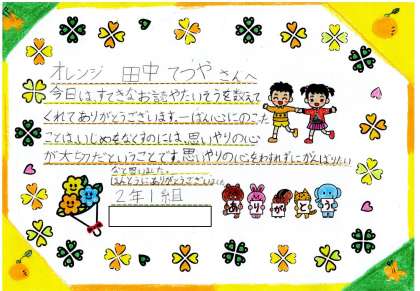 オレンジ 田中 てつや さんへ
今日は、すてきなお話やたいそうを教えて
くれてありがとうございます。一ばん心にのこった
ことは、いじめをなくすのには、思いやりの心
が大切だということです。思いやりの心をわすれずにがんばりたい
なと思いました。
ほんとうにありがとうございました。
2年1組
ありがとう